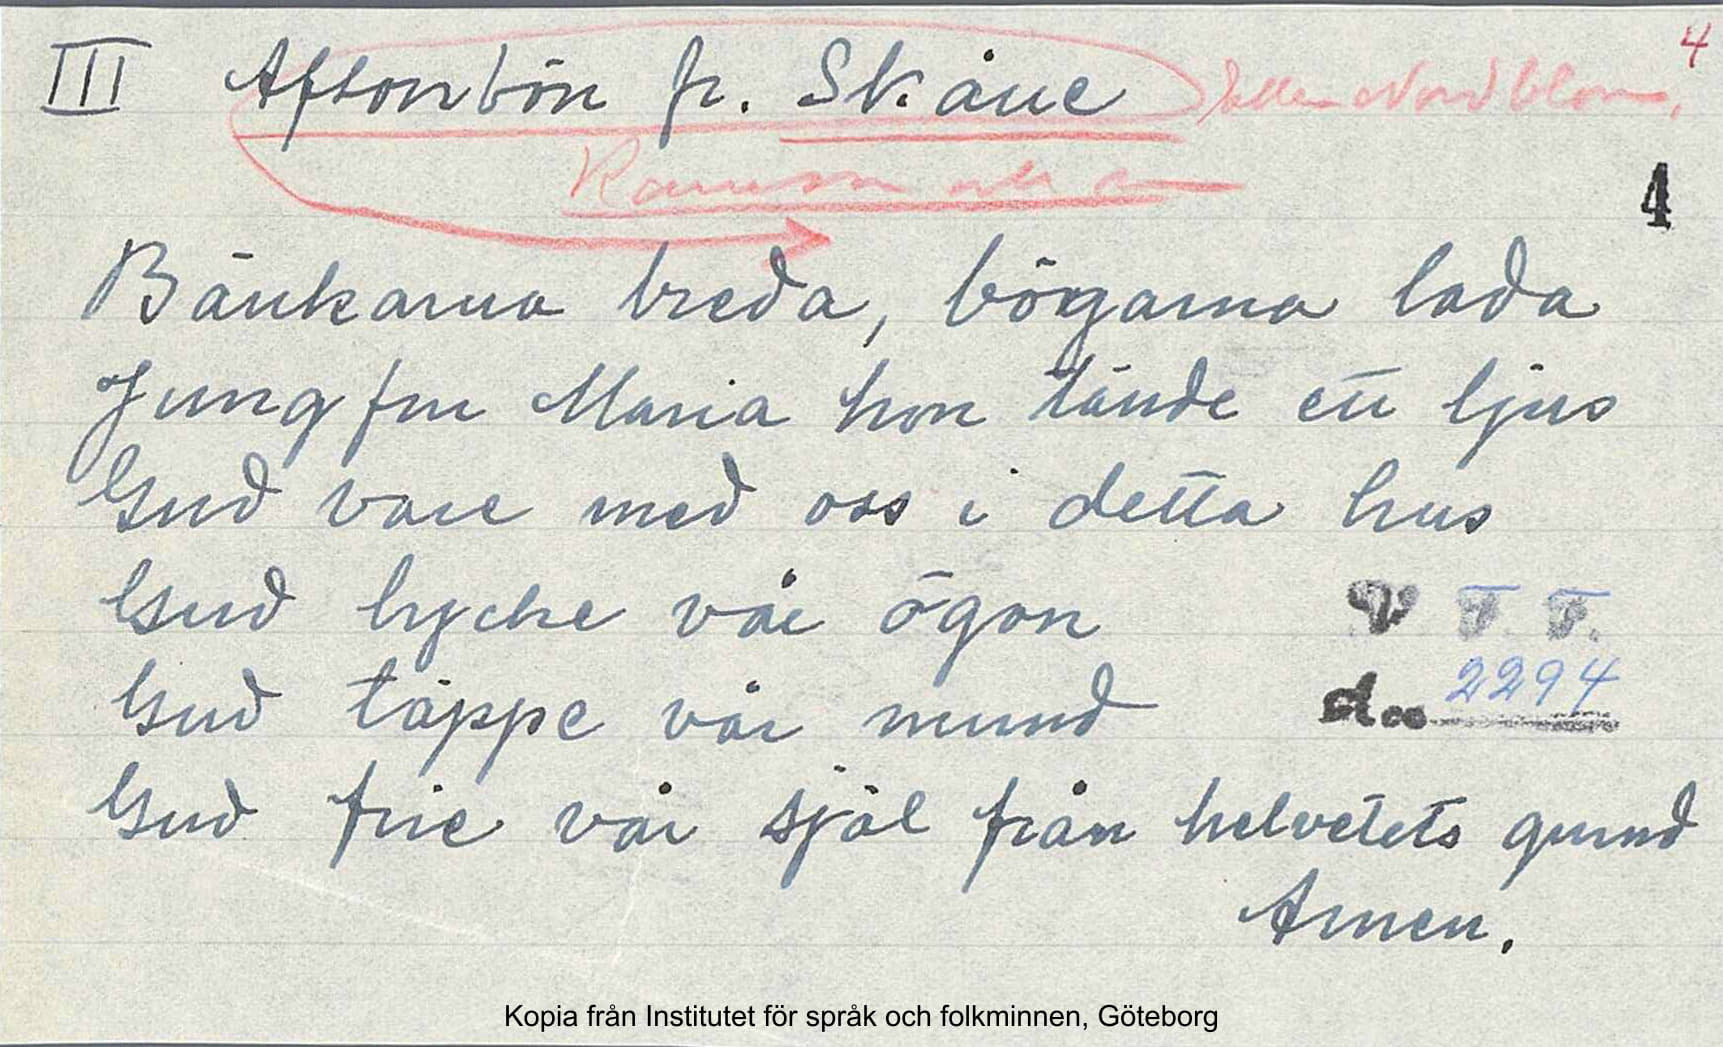 III Aftonbön fr. Skåne
4
4
Bänkarna breda, bögarna lada
Jungfru Maria hon tände ett ljus
Gud vare med oss i detta hus
Gud lycke vår ögon
Gud täppe vår mund
Gud frie vår själ från helvetets grund
Amen.
V F F.
d.. 2294
Kopia från Institutet för språk och folkminnen, Göteborg